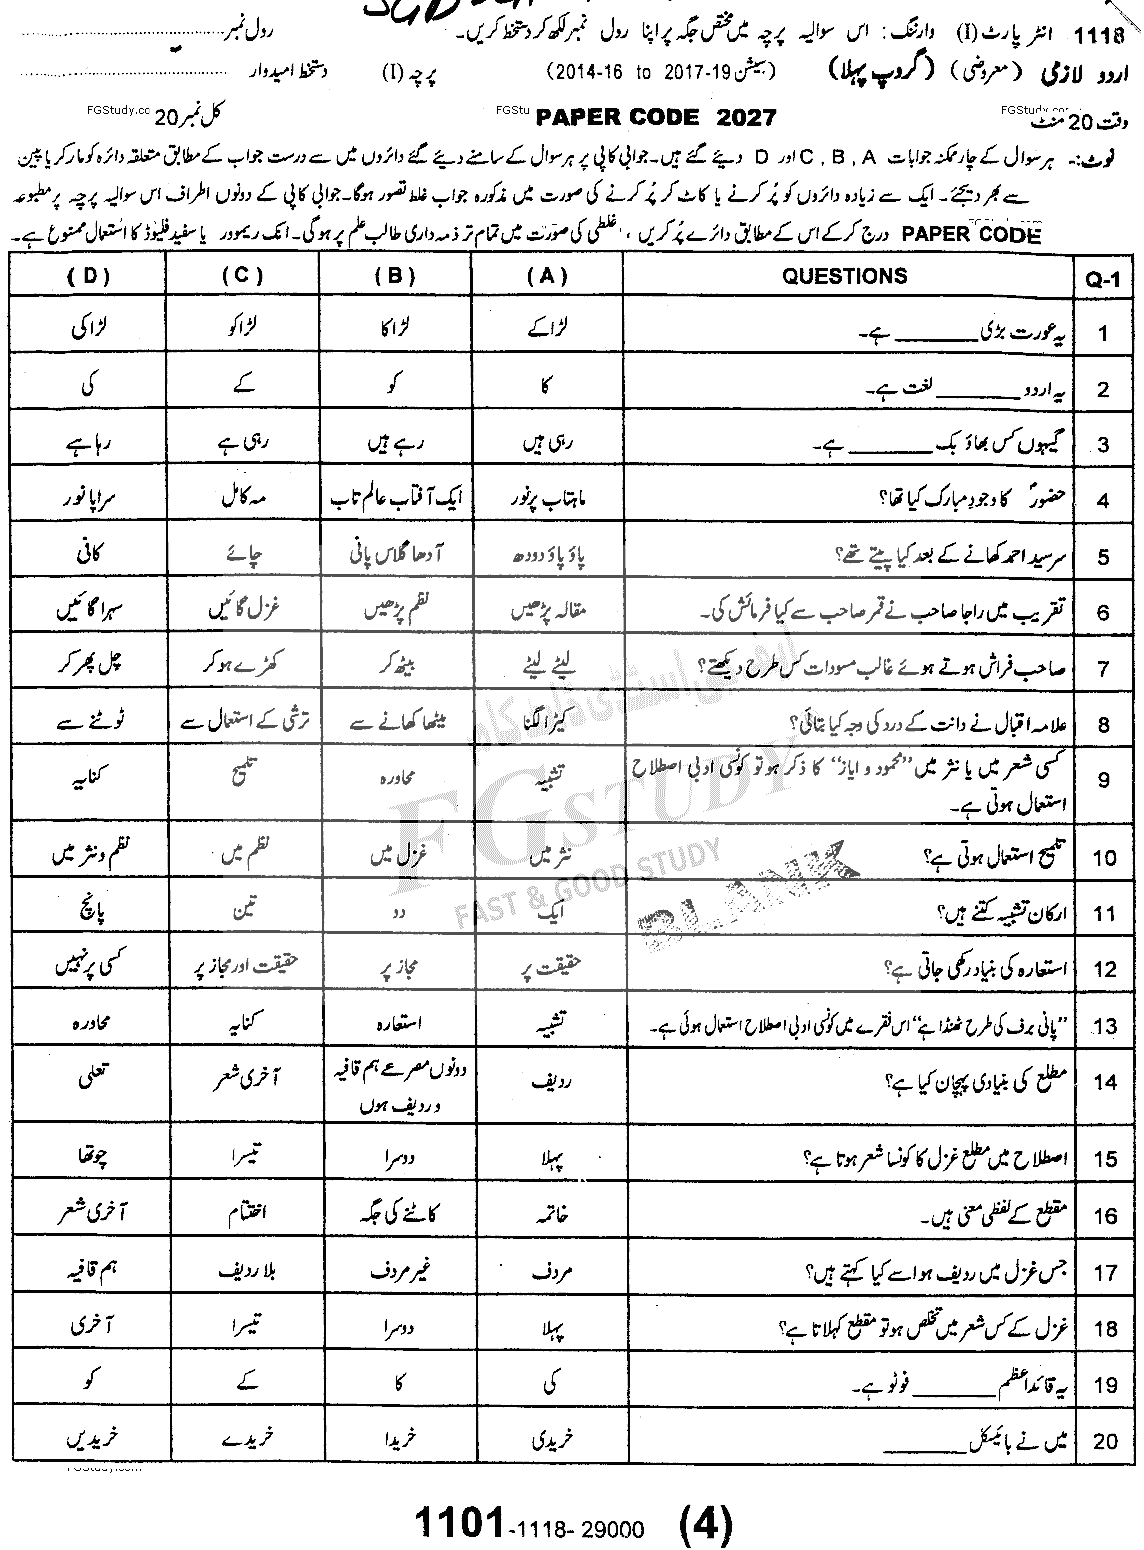 1118 انٹر پارٹ (I) وارننگ: اس سوالیہ پرچہ میں مختص جگہ پر اپنا رول نمبر لکھ کر دستخط کریں۔ رول نمبر
اردو لازمی (معروضی) (گروپ پہلا) (سیشن 19-2017 to 2014-16) پرچہ (I) دستخط امیدوار
وقت 20 منٹ FGStudy.com PAPER CODE 2027 FGStu کل نمبر 20 FGStudy.co
نوٹ:- ہر سوال کے چار ممکنہ جوابات A , B , C اور D دیئے گئے ہیں۔ جوابی کاپی پر ہر سوال کے سامنے دیئے گئے دائروں میں سے درست جواب کے مطابق متعلقہ دائرہ کو مارکر یا پین
سے بھر دیجئے۔ ایک سے زیادہ دائروں کو پُر کرنے یا کاٹ کر پُر کرنے کی صورت میں مذکورہ جواب غلط تصور ہوگا۔ جوابی کاپی کے دونوں اطراف اس سوالیہ پرچہ پر مطبوعہ
PAPER CODE درج کر کے اس کے مطابق دائرے پُر کریں، غلطی کی صورت میں تمام تر ذمہ داری طالب علم پر ہوگی۔ انک ریموور یا سفید فلیوڈ کا استعمال ممنوع ہے۔
Q-1 QUESTIONS (A) (B) (C) (D)
1 یہ عورت بڑی ______ ہے۔ لڑاکے لڑاکا لڑاکو لڑاکی
2 یہ اردو ______ لغت ہے۔ کا کو کے کی
3 گیہوں کس بھاؤ بک ______ ہے۔ رہی ہیں رہے ہیں رہی ہے رہا ہے
4 حضورؐ کا وجودِ مبارک کیا تھا؟ ماہتاب پرنور ایک آفتاب عالم تاب مہ کامل سراپا نور
5 سرسید احمد کھانے کے بعد کیا پیتے تھے؟ پاؤ پاؤ دودھ آدھا گلاس پانی چائے کافی
6 تقریب میں راجا صاحب نے قمر صاحب سے کیا فرمائش کی۔ مقالہ پڑھیں نظم پڑھیں غزل گائیں سہرا گائیں
7 صاحب فراش ہوتے ہوئے غالب مسودات کس طرح دیکھتے؟ لیٹے لیٹے بیٹھ کر کھڑے ہو کر چل پھر کر
8 علامہ اقبال نے دانت کے درد کی وجہ کیا بتائی؟ کیڑا لگنا میٹھا کھانے سے ترشی کے استعمال سے ٹوٹنے سے
9 کسی شعر میں یا نثر میں "محمود و ایاز" کا ذکر ہو تو کونسی ادبی اصطلاح تشبیہ محاورہ تلمیح کنایہ
استعمال ہوتی ہے۔
10 تلمیح استعمال ہوتی ہے؟ نثر میں غزل میں نظم میں نظم و نثر میں
11 ارکان تشبیہ کتنے ہیں؟ ایک دو تین پانچ
12 استعارہ کی بنیاد رکھی جاتی ہے؟ حقیقت پر مجاز پر حقیقت اور مجاز پر کسی پر نہیں
13 "پانی برف کی طرح ٹھنڈا ہے" اس فقرے میں کونسی ادبی اصطلاح استعمال ہوئی ہے۔ تشبیہ استعارہ کنایہ محاورہ
14 مطلع کی بنیادی پہچان کیا ہے؟ ردیف دونوں مصرعے ہم قافیہ آخری شعر تعلی
و ردیف ہوں
15 اصطلاح میں مطلع غزل کا کونسا شعر ہوتا ہے؟ پہلا دوسرا تیسرا چوتھا
16 مقطع کے لفظی معنی ہیں۔ خاتمہ کاٹنے کی جگہ اختتام آخری شعر
17 جس غزل میں ردیف ہو اسے کیا کہتے ہیں؟ مردف غیر مردف بلا ردیف ہم قافیہ
18 غزل کے کس شعر میں تخلص ہو تو مقطع کہلاتا ہے؟ پہلا دوسرا تیسرا آخری
19 یہ قائداعظم ______ فوٹو ہے۔ کی کا کے کو
20 میں نے بائیسکل ______ خریدی خریدا خریدے خریدیں
ایف جی اسٹڈی ڈاٹ کام
FGSTUDY
FAST & GOOD STUDY
BLANK
FGStudy.com
1101-1118-29000 (4)